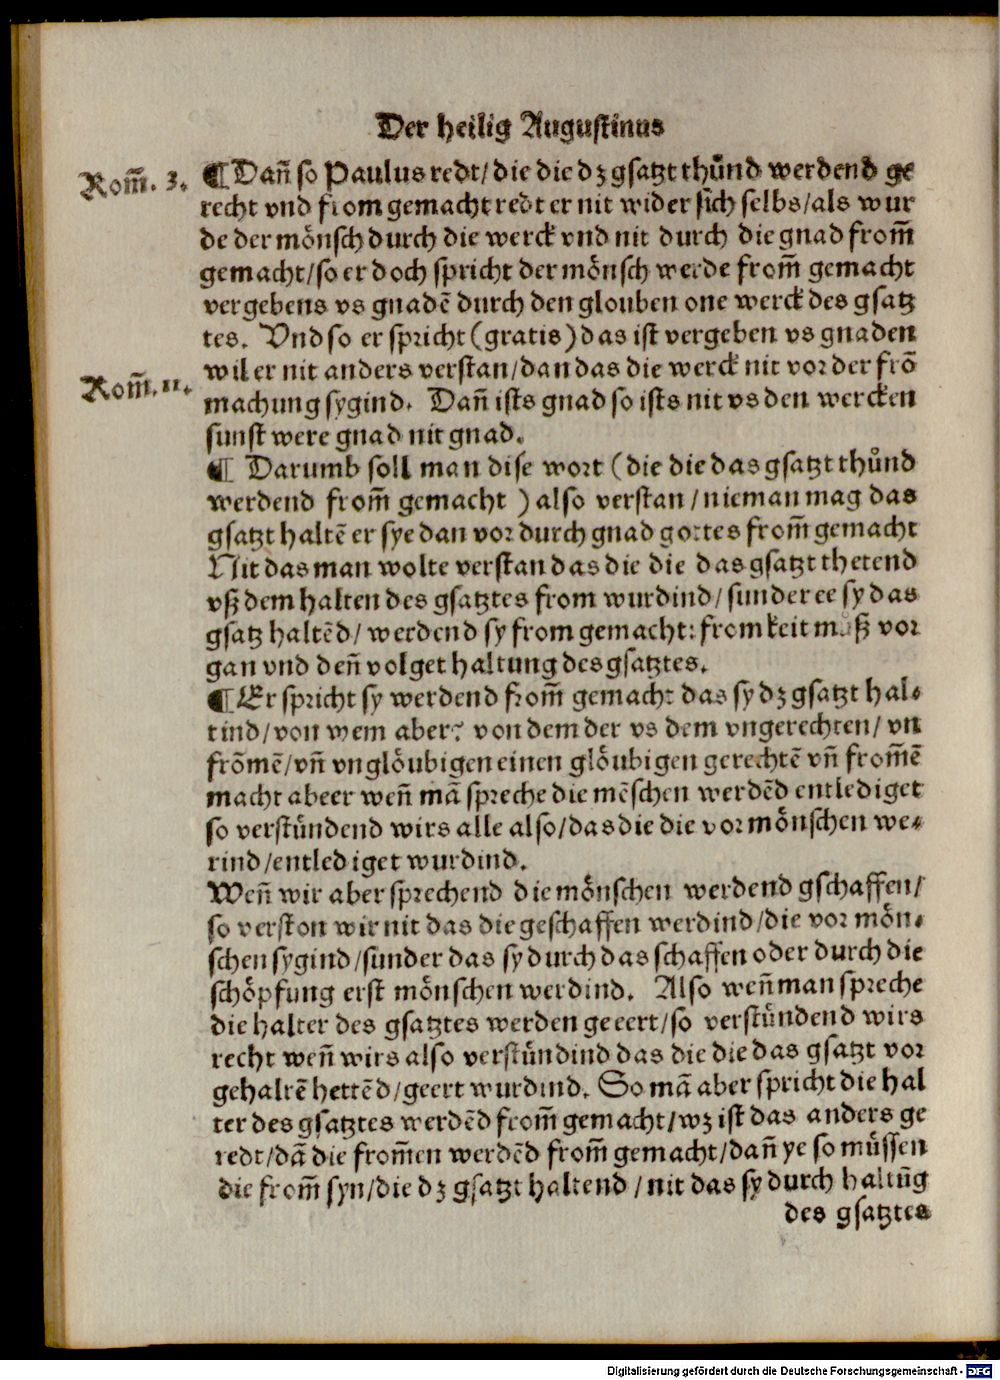 Der heilig Augustinus
Rom̃. 3.
¶ Dañ so Paulus redt/die die dz gsatzt thůnd werdend ge
recht vnd from gemacht redt er nit wider sich selbs/als wur
de der mönsch durch die werck vnd nit durch die gnad from̃
gemacht/so er doch spricht der mönsch werde from̃ gemacht
vergebens vs gnadē durch den glouben one werck des gsatz
tes. Vnd so er spricht (gratis) das ist vergeben vs gnaden
wil er nit anders verstan/dan das die werck nit vor der frō
Rom̃. 11.
machung sygind. Dañ ists gnad so ists nit vs den wercken
sunst were gnad nit gnad.
¶ Darumb soll man dise wort (die die das gsatzt thůnd
werdend from̃ gemacht ) also verstan/nieman mag das
gsatzt haltē er sye dan vor durch gnad gottes from̃ gemacht
Nit das man wolte verstan das die die das gsatzt thetend
vß dem halten des gsatztes from wurdind/sunder ee sy das
gsatz haltēd/werdend sy from gemacht: fromkeit můß vor
gan vnd deñ volget haltung des gsatztes.
¶ Er spricht sy werdend from̃ gemacht das sy dz gsatzt hal⸗
tind/von wem aber? von dem der vs dem vngerechten/vn
frōmē/vñ vnglöubigen einen glöubigen gerechtē vñ from̃ē
macht abeer weñ mā spreche die mēschen werdēd entlediget
so verstündend wirs alle also/das die die vor mönschen we⸗
rind/entlediget wurdind.
Weñ wir aber sprechend die mönschen werdend gschaffen/
so verston wir nit das die geschaffen werdind/die vor mön⸗
schen sygind/sunder das sy durch das schaffen oder durch die
schöpfung erst mönschen werdind. Also weñ man spreche
die halter des gsatztes werden geeert/so verstündend wirs
recht weñ wirs also verstündind das die die das gsatzt vor
gehaltē hettēd/geert wurdind. So mā aber spricht die hal
ter des gsatztes werdēd from̃ gemacht/wz ist das anders ge
redt/dā die from̃en werdēd from̃ gemacht/dañ ye so müssen
die from̃ syn/die dz gsatzt haltend/nit das sy durch haltūg
des gsatztes
Digitalisierung gefördert durch die Deutsche Forschungsgemeinschaft - DFG